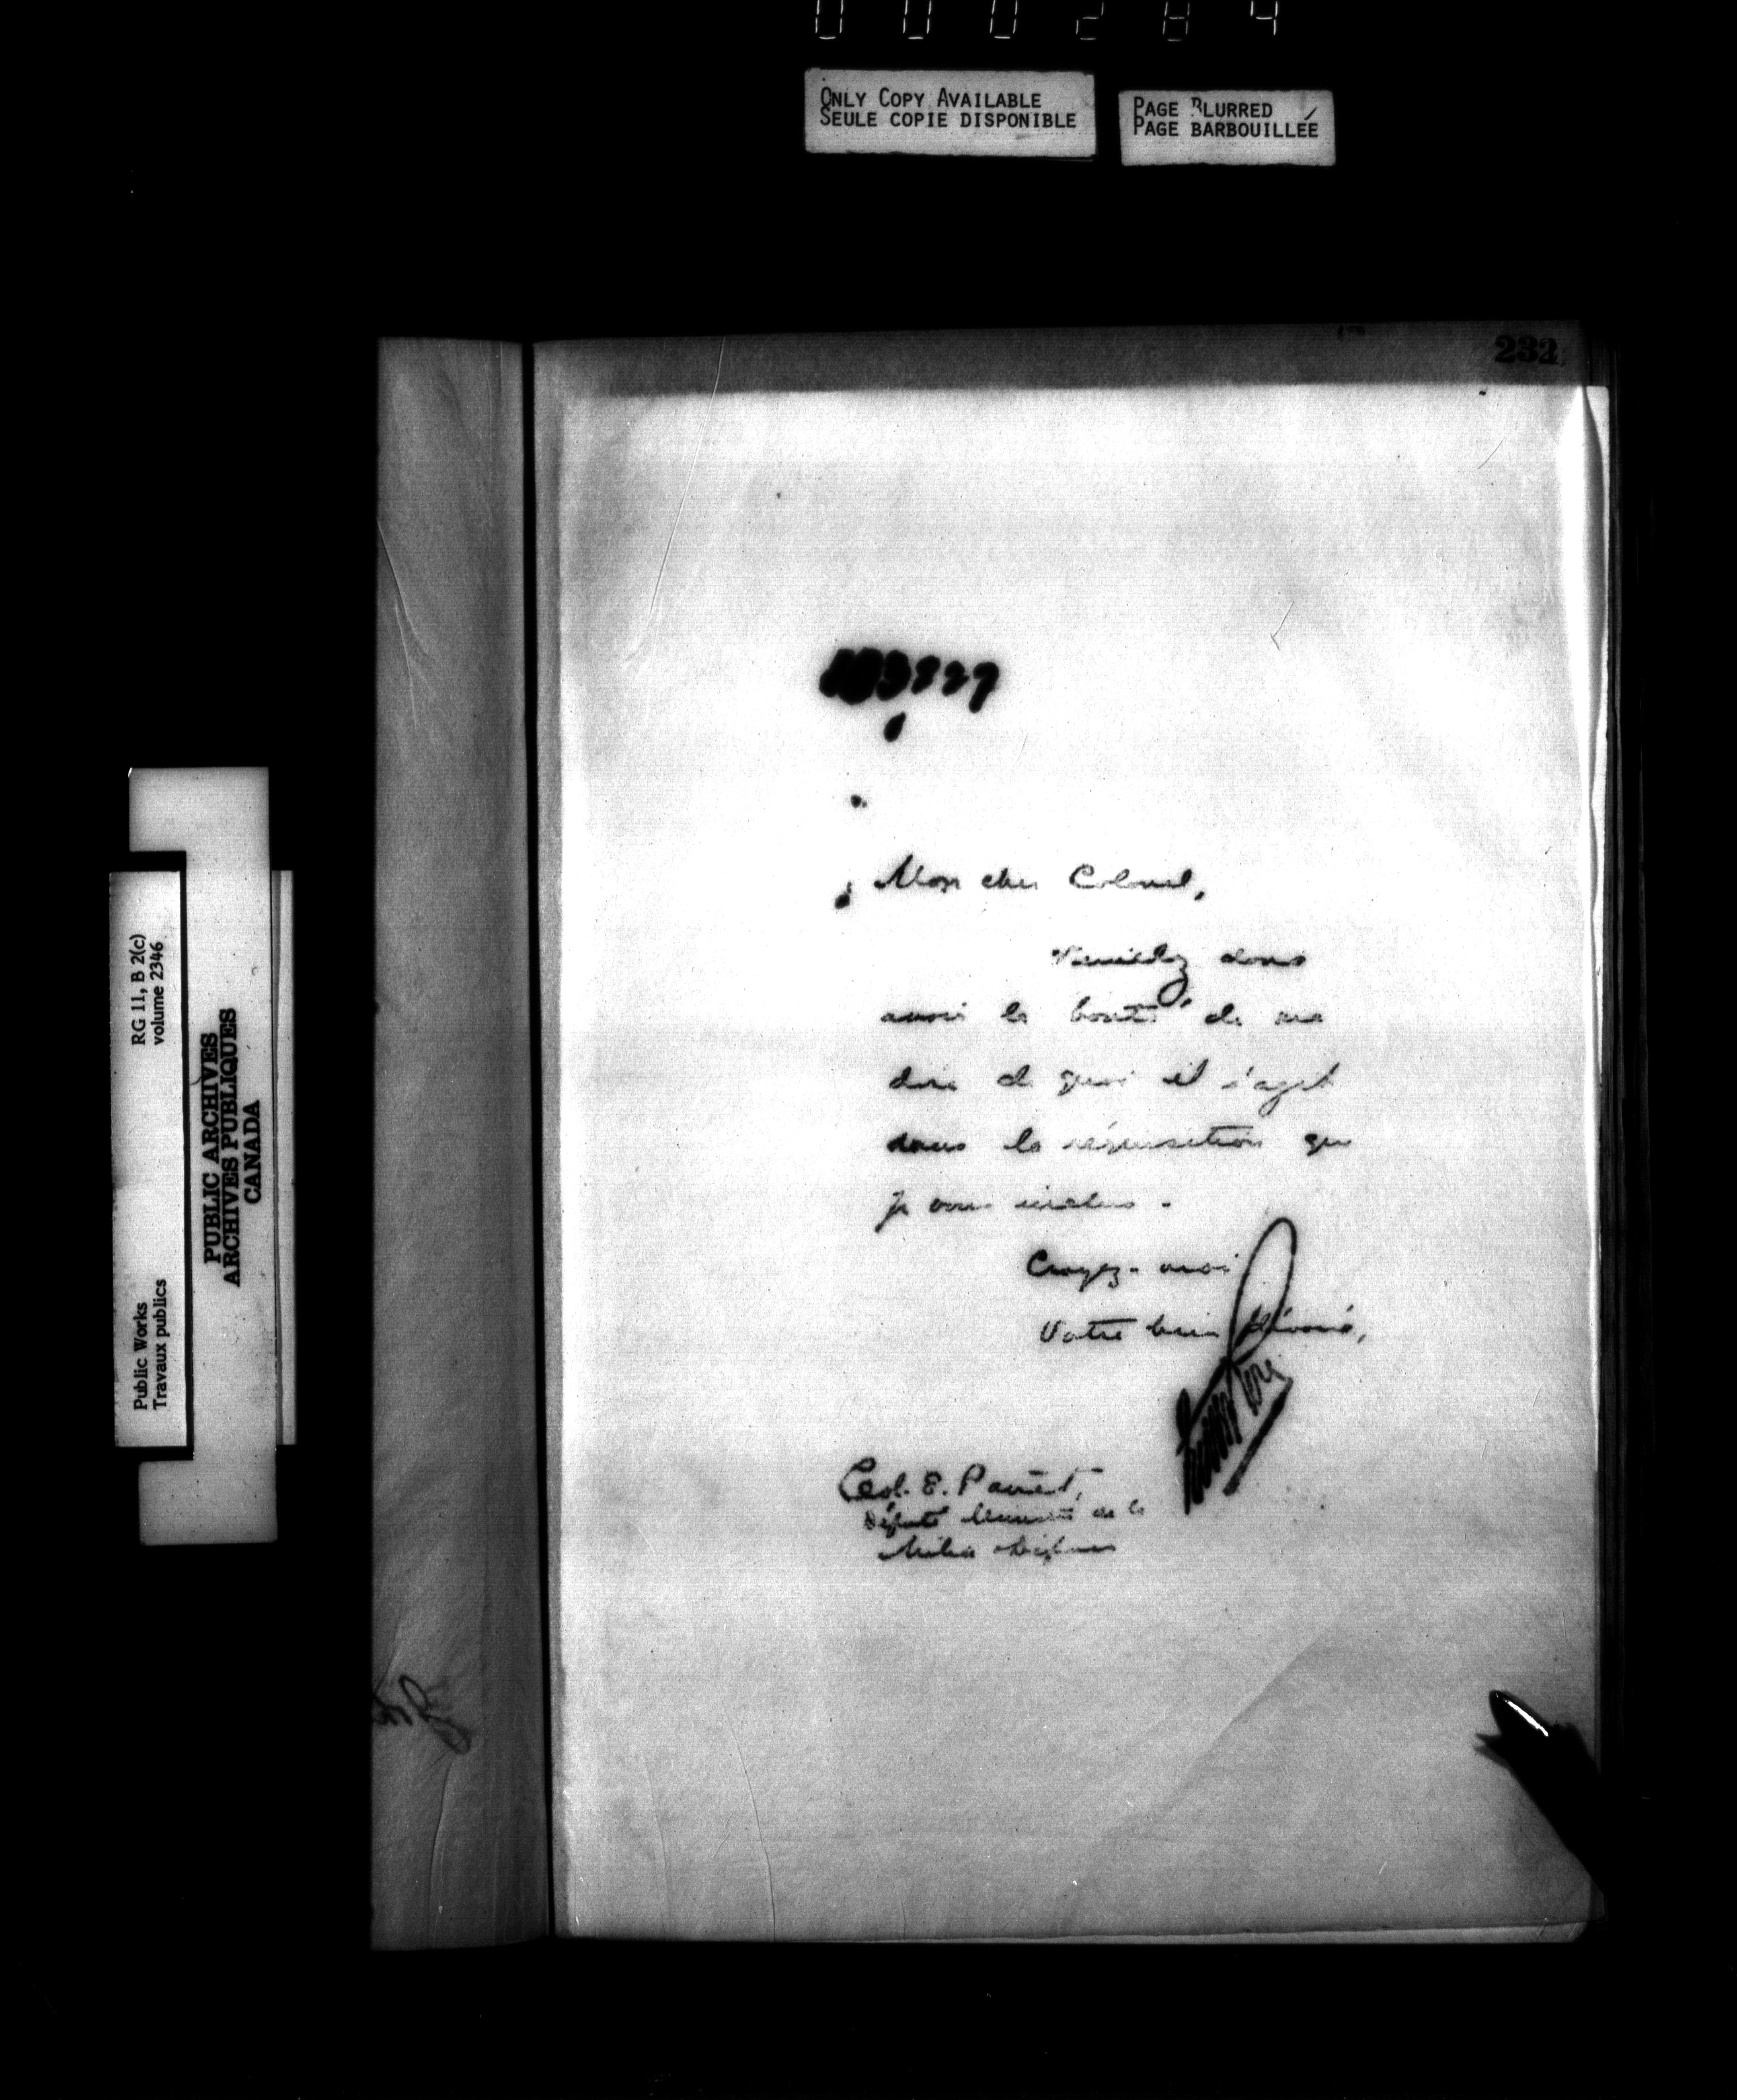 000284
ONLY COPY AVAILABLE
SEULE COPIE DISPONIBLE
PAGE BLURRED
PAGE BARBOUILLÉE
232
Mon cher Colonel,
Veuillez donc
avoir la bonté de me
dire de quoi il s'agit
dans la réquisition que
je vous inclus.
Croyez-moi
Votre bien dévoué,
Col. E. Panet,
Député Ministre de la
Milice
Public Works
Travaux publics
RG 11, B 2(c)
volume 2346
PUBLIC ARCHIVES
ARCHIVES PUBLIQUES
CANADA